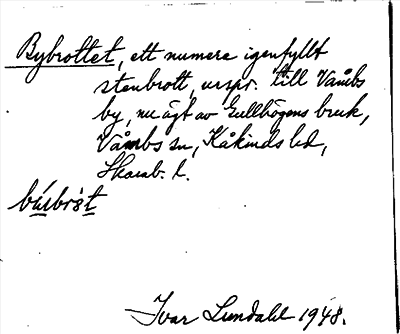 Bybrottet, ett numera igenfyllt
stenbrott, urspr. till Våmbs
by, nu ägt av Gullhögens bruk,
Våmbs sn, Kåkinds hd,
Skarab. l.
býbrŏ̀t
Ivar Lundahl 1948.